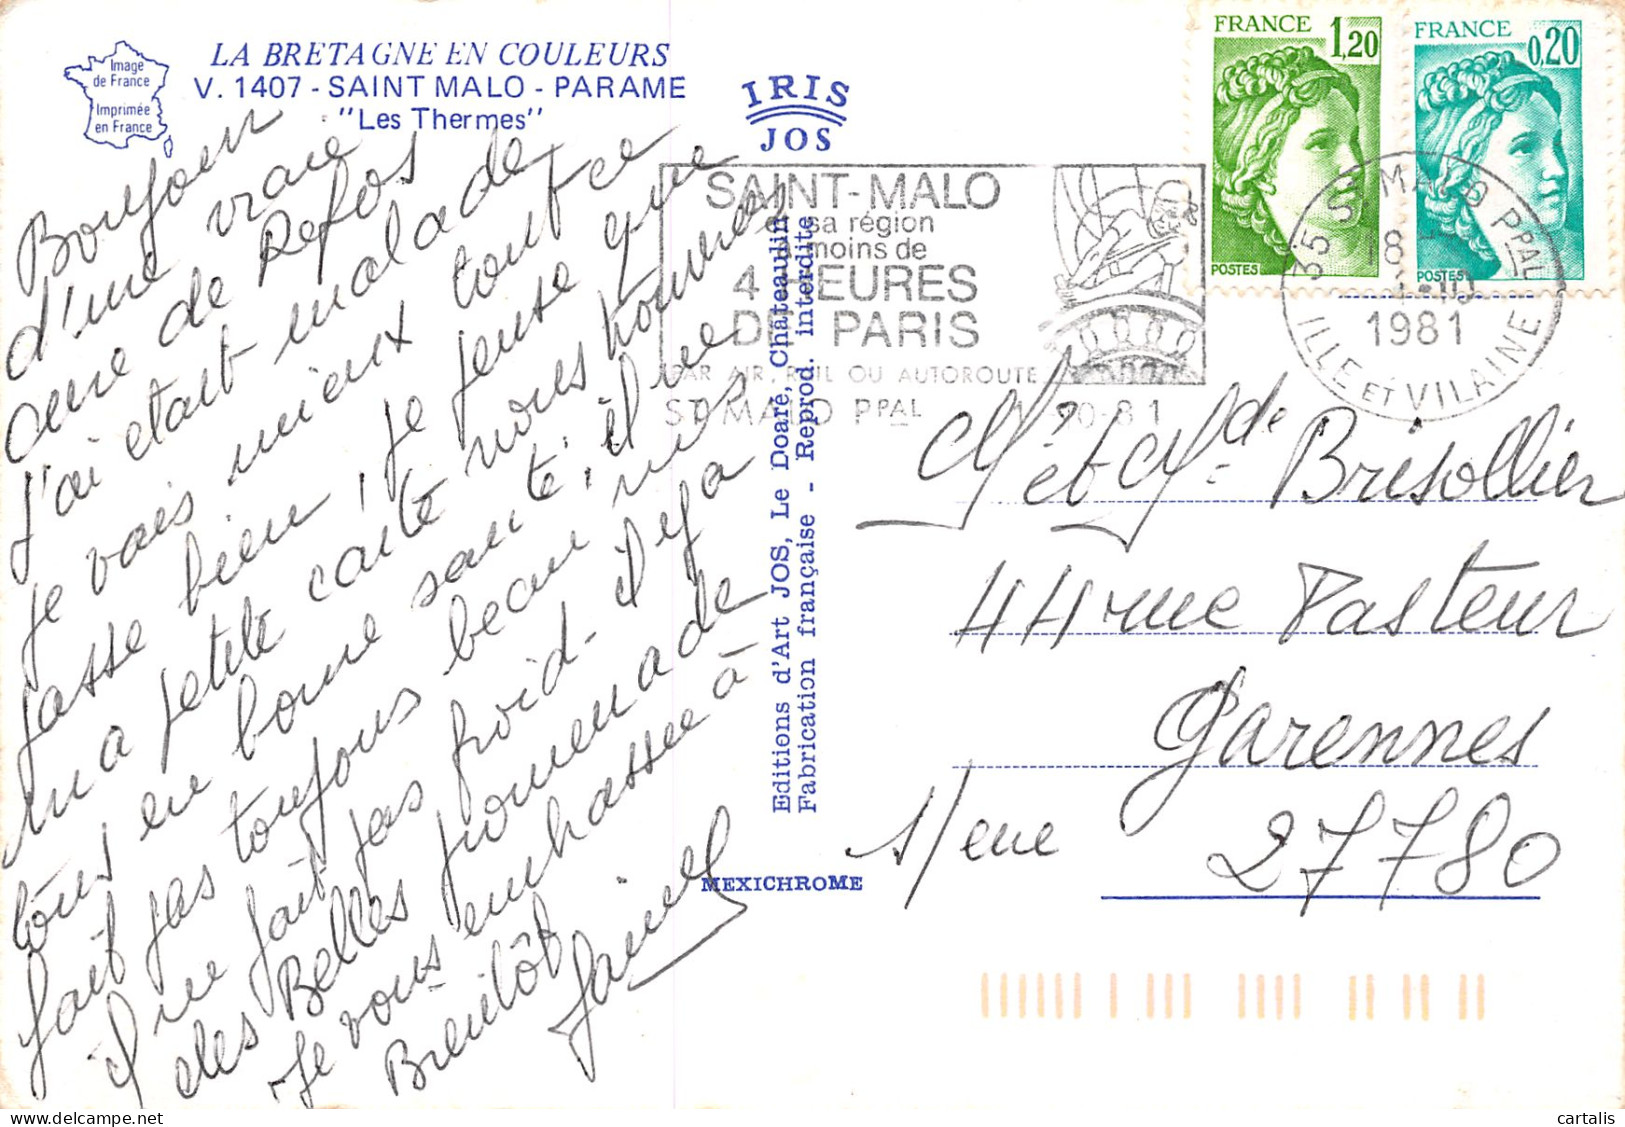 Image
de France
Imprimée
en France
LA BRETAGNE EN COULEURS
V. 1407 - SAINT MALO - PARAME
"Les Thermes"
IRIS
JOS
FRANCE 1,20
POSTES
FRANCE 0,20
POSTES
SAINT-MALO
et sa région
à moins de
4 HEURES
DE PARIS
PAR AIR, RAIL OU AUTOROUTE
ST MALO PPAL
35 ST MALO PPAL
18
1981
ILLE ET VILAINE
Bonjour
d'une vraie
cure de Repos
j'ai était malade
je vais mieux tout ce
passe bien, je pense que
ma petite carte vous trouvera
tous en bonne santé, il ne
fait pas toujours beau mais
il ne fait pas froid - il y a
des Belles promenade
Je vous embrassee à
Bientôt
Editions d'Art JOS, Le Doaré, Châteaulin
Fabrication française - Reprod. interdite
MEXICHROME
Mr et Mde Brisollier
44 rue Pasteur
Garennes
s/eure 27780
cartalis